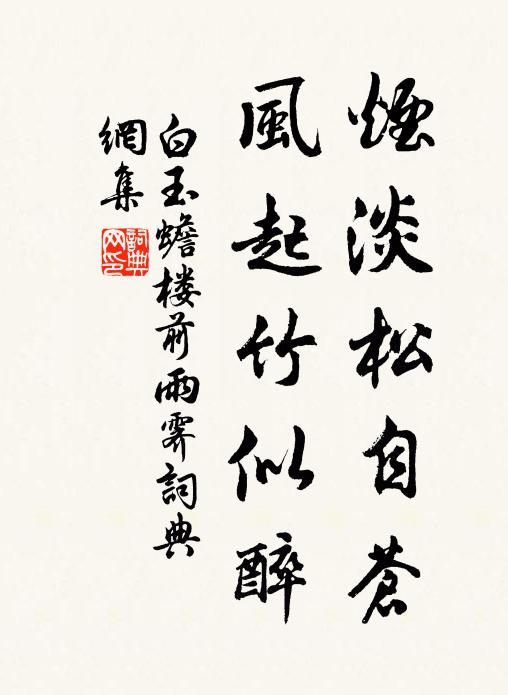 煙淡松自蒼
風起竹似醉
白玉蟾楼前雨霽詞典
網集
詞典
网印